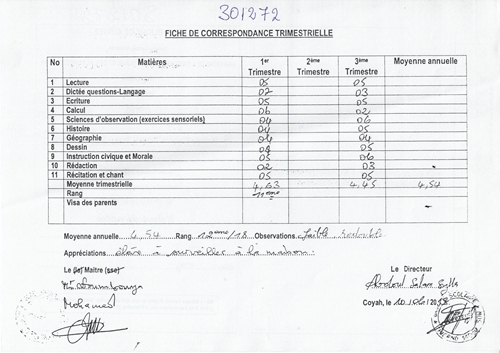 301272
FICHE DE CORRESPONDANCE TRIMESTRIELLE
No Matières 1er Trimestre 2ème Trimestre 3ème Trimestre Moyenne annuelle
1 Lecture 05 05
2 Dictée questions-Langage 02 03
3 Ecriture 05 05
4 Calcul 06 02
5 Sciences d'observation (exercices sensoriels) 04 06
6 Histoire 04 05
7 Géographie 04 04
8 Dessin 08 05
9 Instruction civique et Morale 05 06
10 Rédaction 02 03
11 Récitation et chant 05 05
Moyenne trimestrielle 4,63 4,45 4,54
Rang 11ème
Visa des parents
Moyenne annuelle 4,54 Rang 12ème/18 Observations faible
Appréciations élève à surveiller à la maison.
Le Maitre Le Directeur
Mohamed
Coyah, le 10/06/20